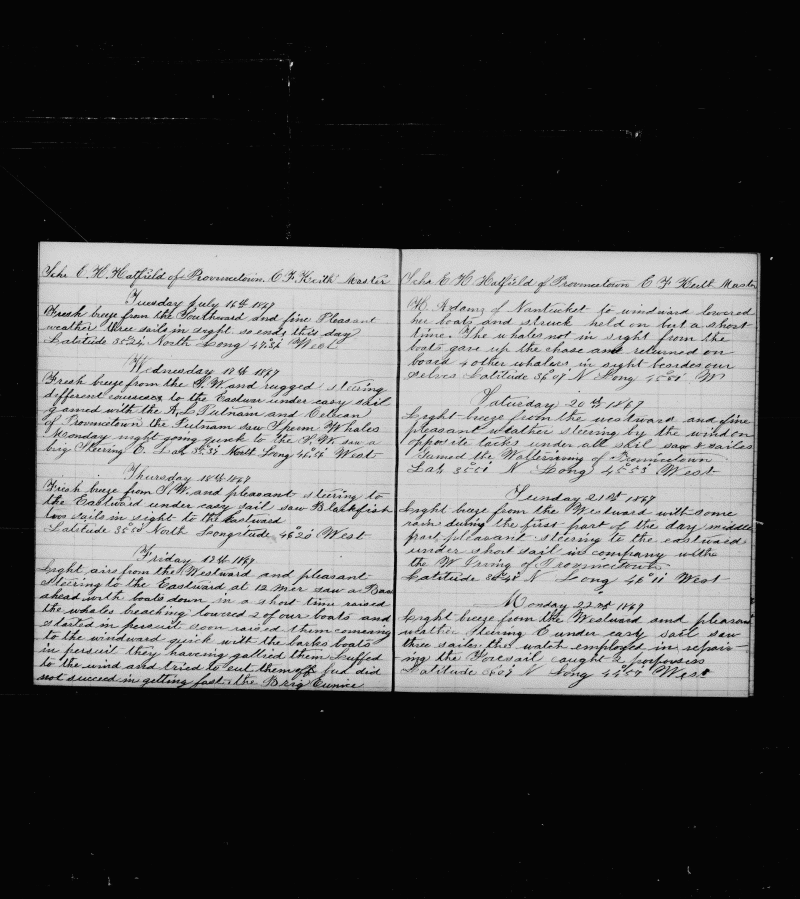 Schr E. H. Hatfield of Provincetown C F Keith Master
Tuesday July 16th 1867
Fresh breeze from the Southward and fine Pleasant
weather three sails in sight so ends this day
Latitude 35°24 North Long 47°34 West
Wednesday 17th 1867
Fresh breeze from the and rugged steering
different courses to the Eastwar under easy sail
gamed with the Putnam and
of Provinctown the Putnam saw Sperm Whales
Monday night going quick to the saw a
brig Steering E. Lat North Long West
Thursday 18th 1867
Fresh breeze from S.W. and pleasant steering to
the Eastward under easy sail saw Blackfish
two sails in sight to the Eastward
Latitude North Longitude West
Friday 19th 1867
Light airs from the Westward and pleasant
steering to the Eastward at 12 Mer saw a Bark
ahead with boats down in a short time raised
the whales breaching lowered 2 of our boats and
started in persuit soon raised them comeing
to the windward quick with the barks boats
in persuit they having gallied them luffed
to the wind and tried to cut them off but did
not succeed in getting fast the Brig Eunice
Schr E H Hatfield of Provincetown C F Keith Master
H. Adams of Nantucket to windward lowered
her boats and struck held on but a short
time. The whales not in sight from the
boats gave up the chase and returned on
board 4 other whalers in sight besides our
selves Latitude N Long W
Saturday 20th 1867
Light breeze from the westward and fine
pleasant weather steering by the wind on
opposite tacks under all sail saw 8 sailes
Gamed the of Provincetown
Lat N Long West
Sunday 21st 1867
Light breeze from the Westward with some
rain during the first part of the day middle
part pleasant steering to the eastward
under short sail in company withe
the W Irving of Provincetown
Latitude N Long West
Monday 22nd 1867
Light breeze from the Westward and pleasant
weather Steering E under easy sail saw
three sailes the watch employed in repair-
ing the Foresail caught 2 porpousies
Latitude N Long West